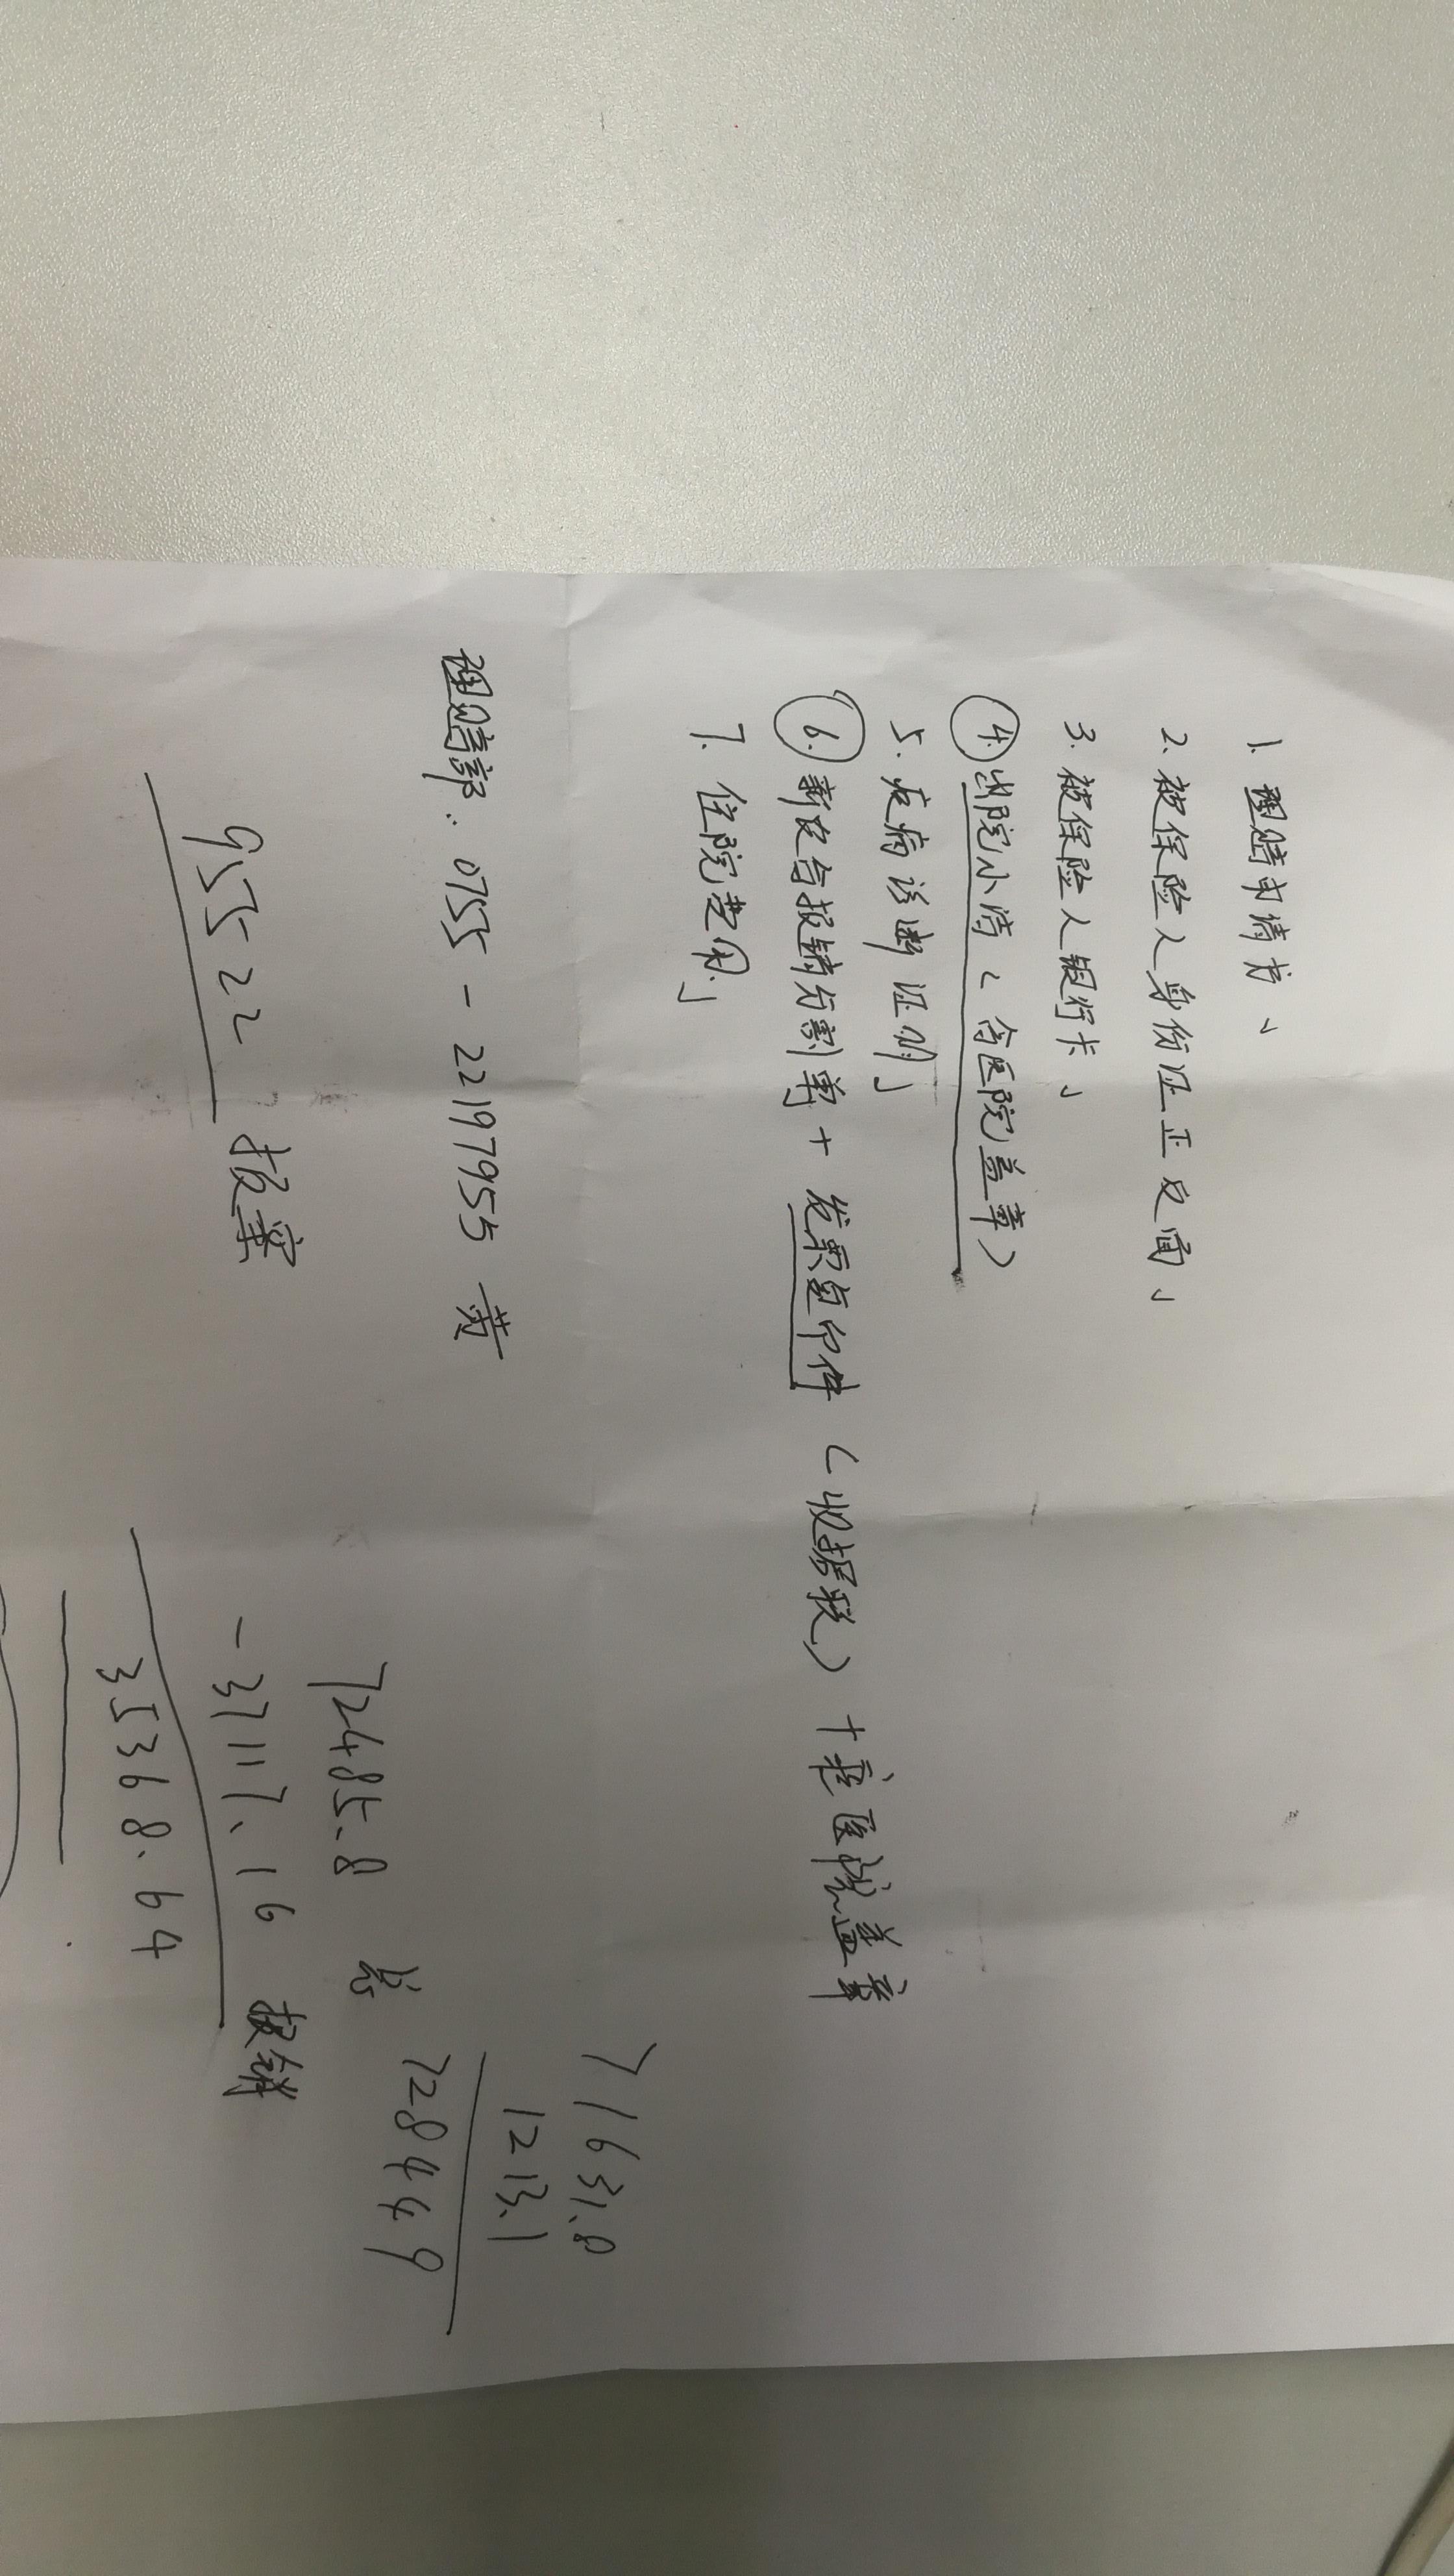 1. 理赔申请书√
2. 被保险人身份证正反面√
3. 被保险人银行卡√
④出院小结(含医院盖章)
5. 疾病诊断证明√
⑥新农合报销分割单+发票复印件(收据联)+医院盖章
7. 住院费用√
理赔部:0755-22197955 黄
95522 报案
71631.8
1213.1
728449
72485.8 总
-37117.16 报销
35368.64